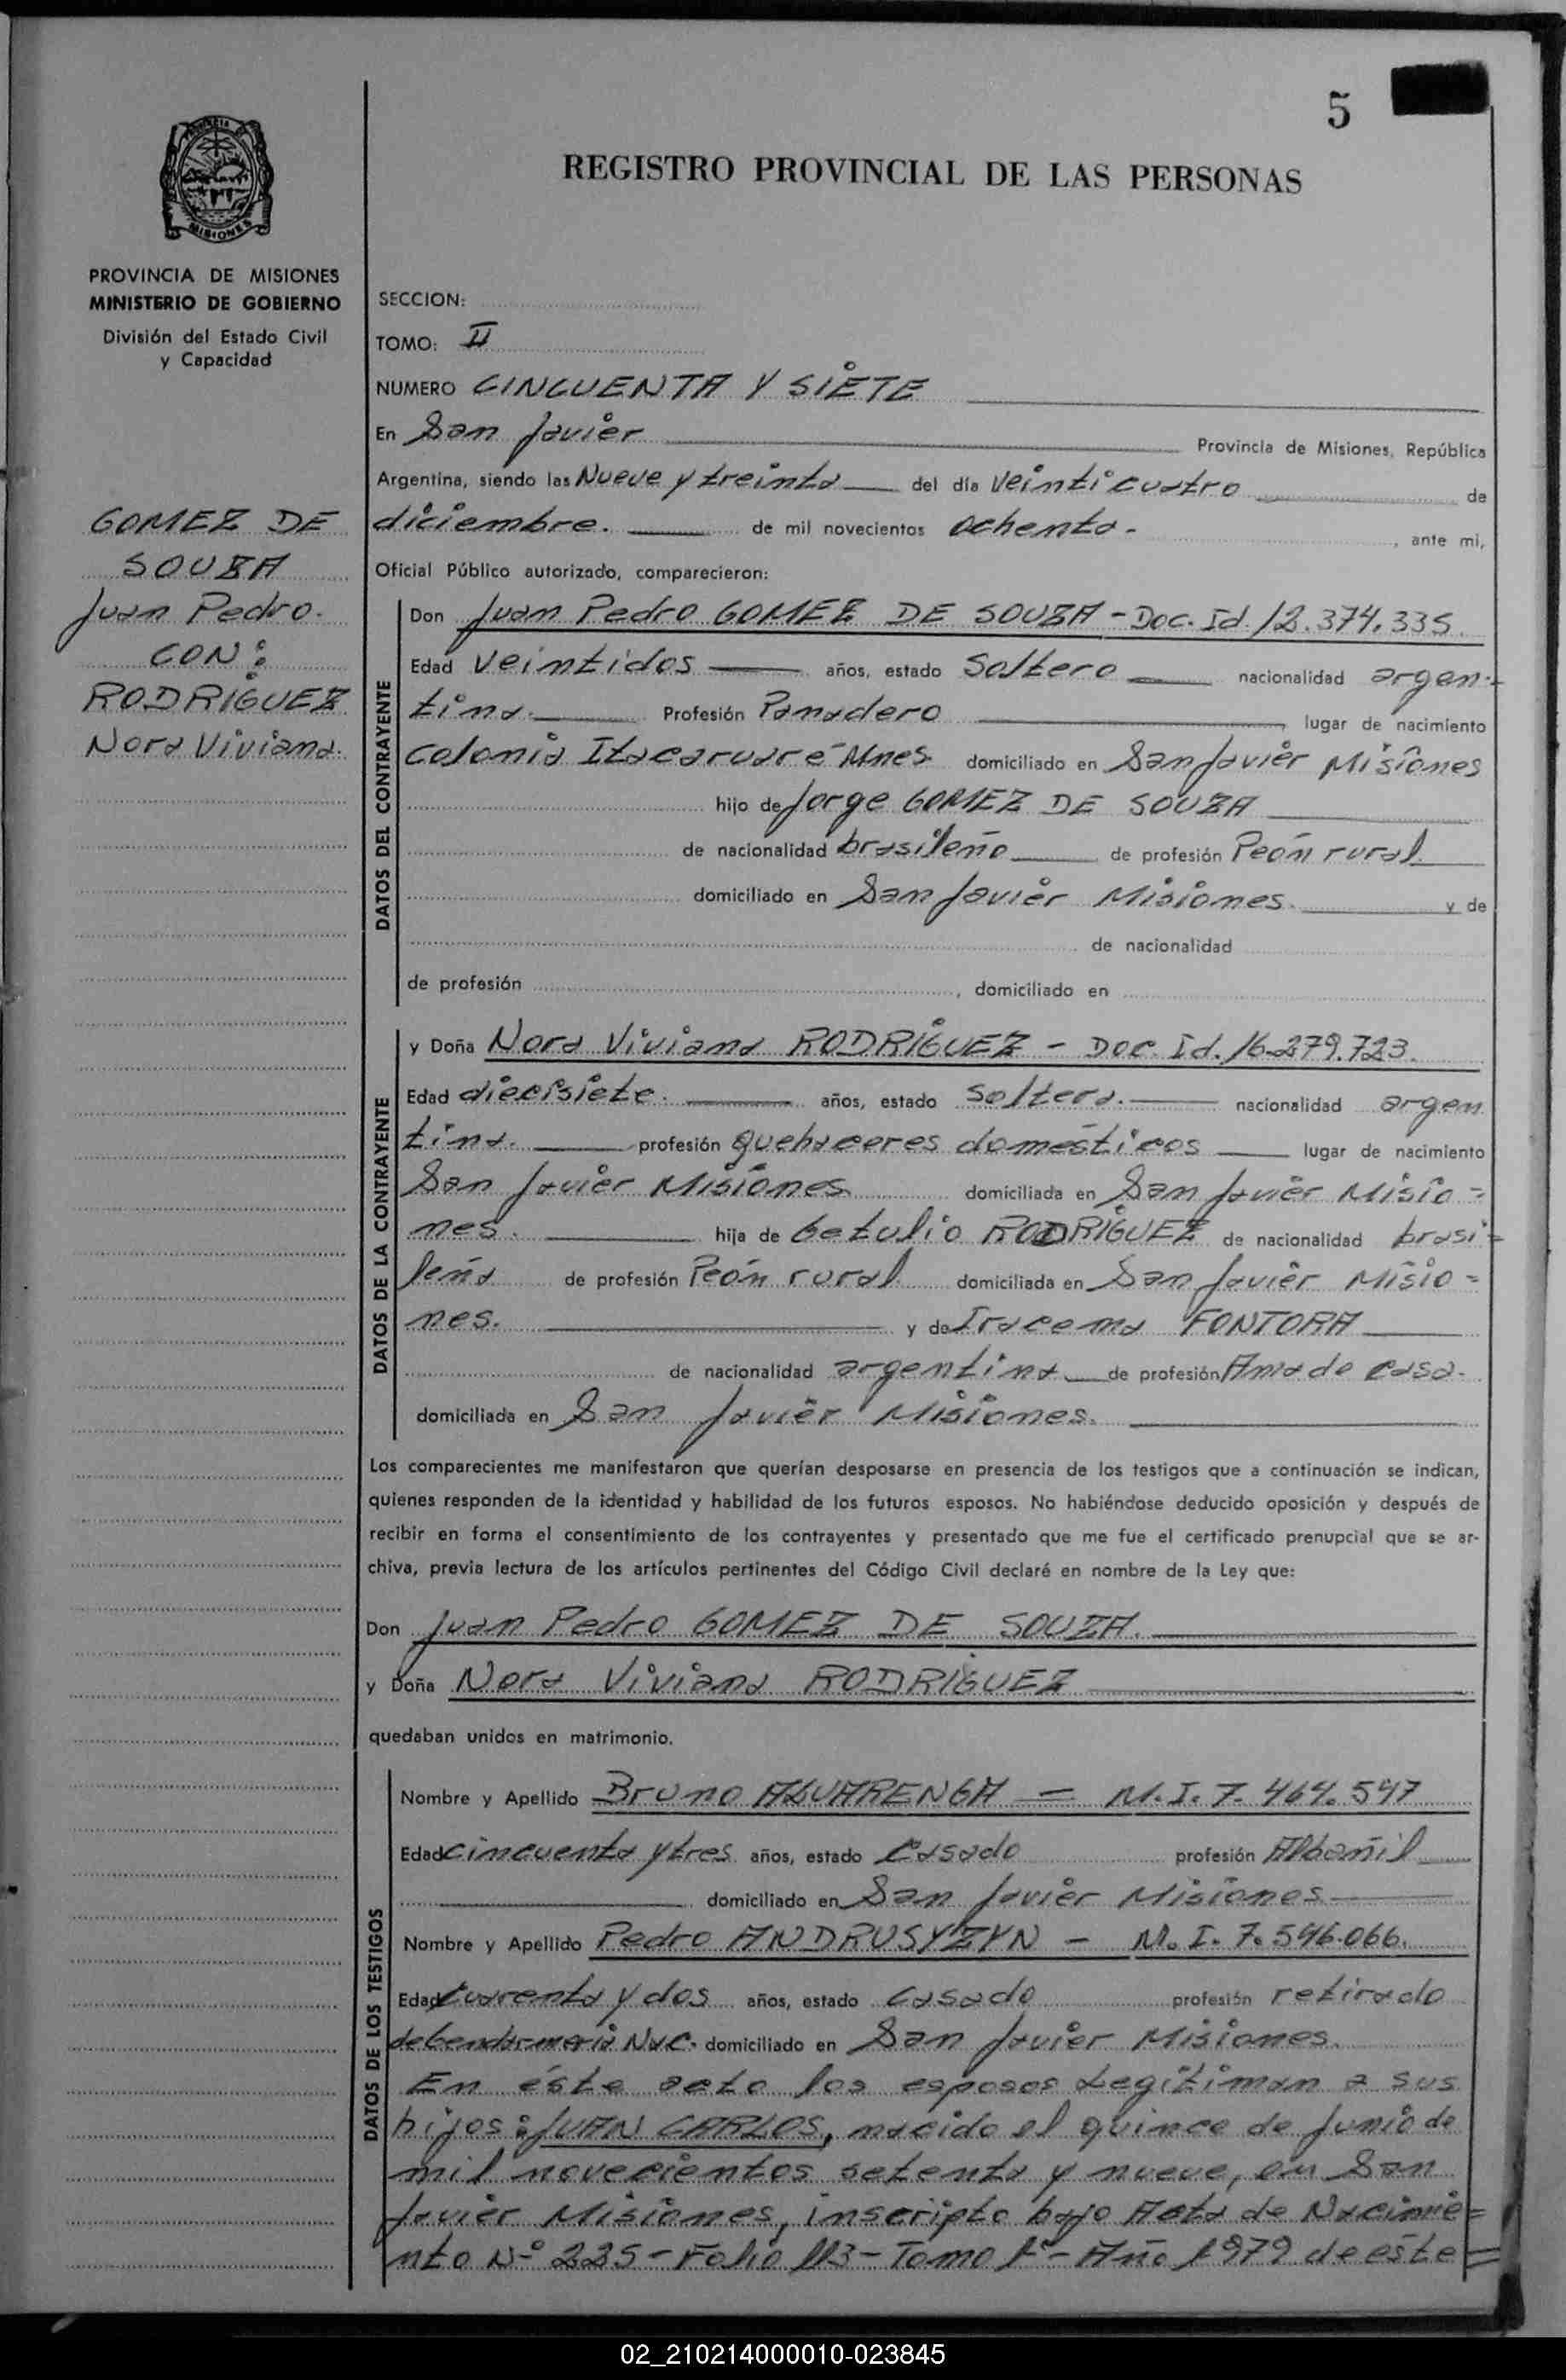 5
REGISTRO PROVINCIAL DE LAS PERSONAS
PROVINCIA DE
MISIONES
PROVINCIA DE MISIONES
MINISTERIO DE GOBIERNO
División del Estado Civil
y Capacidad
GOMEZ DE
SOUZA
Juan Pedro.
CON:
RODRIGUEZ
Nora Viviana.
SECCION:
TOMO: II
NUMERO CINCUENTA Y SIETE
En San Javier Provincia de Misiones, República
Argentina, siendo las Nueve y treinta del día veinticuatro de
diciembre. de mil novecientos ochenta. , ante mi,
Oficial Público autorizado, comparecieron:
DATOS DEL CONTRAYENTE
Don Juan Pedro GOMEZ DE SOUZA - Doc. Id. 12.374.335.
Edad veintidos años, estado soltero nacionalidad argen-
tina. Profesión Panadero lugar de nacimiento
Colonia Itacaruaré Mnes. domiciliado en San Javier Misiones
hijo de Jorge GOMEZ DE SOUZA
de nacionalidad brasileño de profesión Peón rural
domiciliado en San Javier Misiones. y de
de nacionalidad
de profesión , domiciliado en
DATOS DE LA CONTRAYENTE
y Doña Nora Viviana RODRIGUEZ - Doc. Id. 16.279.723.
Edad diecisiete. años, estado soltera. nacionalidad argen
tina. profesión quehaceres domésticos lugar de nacimiento
San Javier Misiones domiciliada en San Javier Misio=
nes. hija de Getulio RODRIGUEZ de nacionalidad brasi=
leña de profesión Peón rural domiciliada en San Javier Misio=
nes. y de Iracema FONTORA
de nacionalidad argentina de profesión Ama de casa.
domiciliada en San Javier Misiones.
Los comparecientes me manifestaron que querían desposarse en presencia de los testigos que a continuación se indican,
quienes responden de la identidad y habilidad de los futuros esposos. No habiéndose deducido oposición y después de
recibir en forma el consentimiento de los contrayentes y presentado que me fue el certificado prenupcial que se ar-
chiva, previa lectura de los artículos pertinentes del Código Civil declaré en nombre de la Ley que:
Don Juan Pedro GOMEZ DE SOUZA.
y Doña Nora Viviana RODRIGUEZ
quedaban unidos en matrimonio.
DATOS DE LOS TESTIGOS
Nombre y Apellido Bruno ALVARENGA = M.I. 7.464.547
Edad cincuenta y tres años, estado casado profesión Albañil
domiciliado en San Javier Misiones
Nombre y Apellido Pedro ANDRUSYZYN - M.I. 7.546.066.
Edad cuarenta y dos años, estado casado profesión retirado
de Gendarmeria Nac. domiciliado en San Javier Misiones.
En éste acto los esposos Legitiman a sus
hijos: JUAN CARLOS, nacido el quince de Junio de
mil novecientos setenta y nueve, en San
Javier Misiones, inscripto bajo Acta de Nacimie=
nto Nº 225 - Folio 113 - Tomo 1º - Año 1979 de éste=
02_210214000010-023845